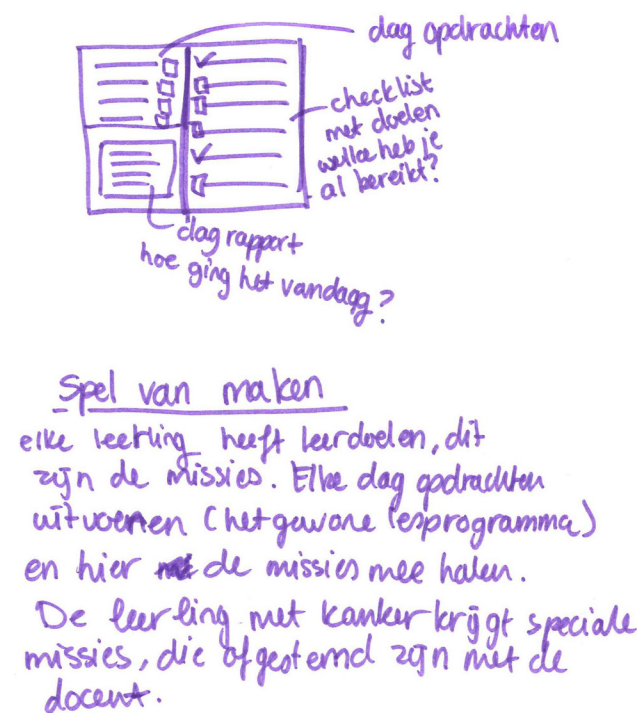 dag opdrachten
checklist
met doelen
welke heb je
al bereikt?
dag rapport
hoe ging het vandaag?
Spel van maken
elke leerling heeft leerdoelen, dit
zijn de missies. Elke dag opdrachten
uitvoeren (het gewone lesprogramma)
en hier de missies mee halen.
De leerling met kanker krijgt speciale
missies, die afgestemd zijn met de
docent.